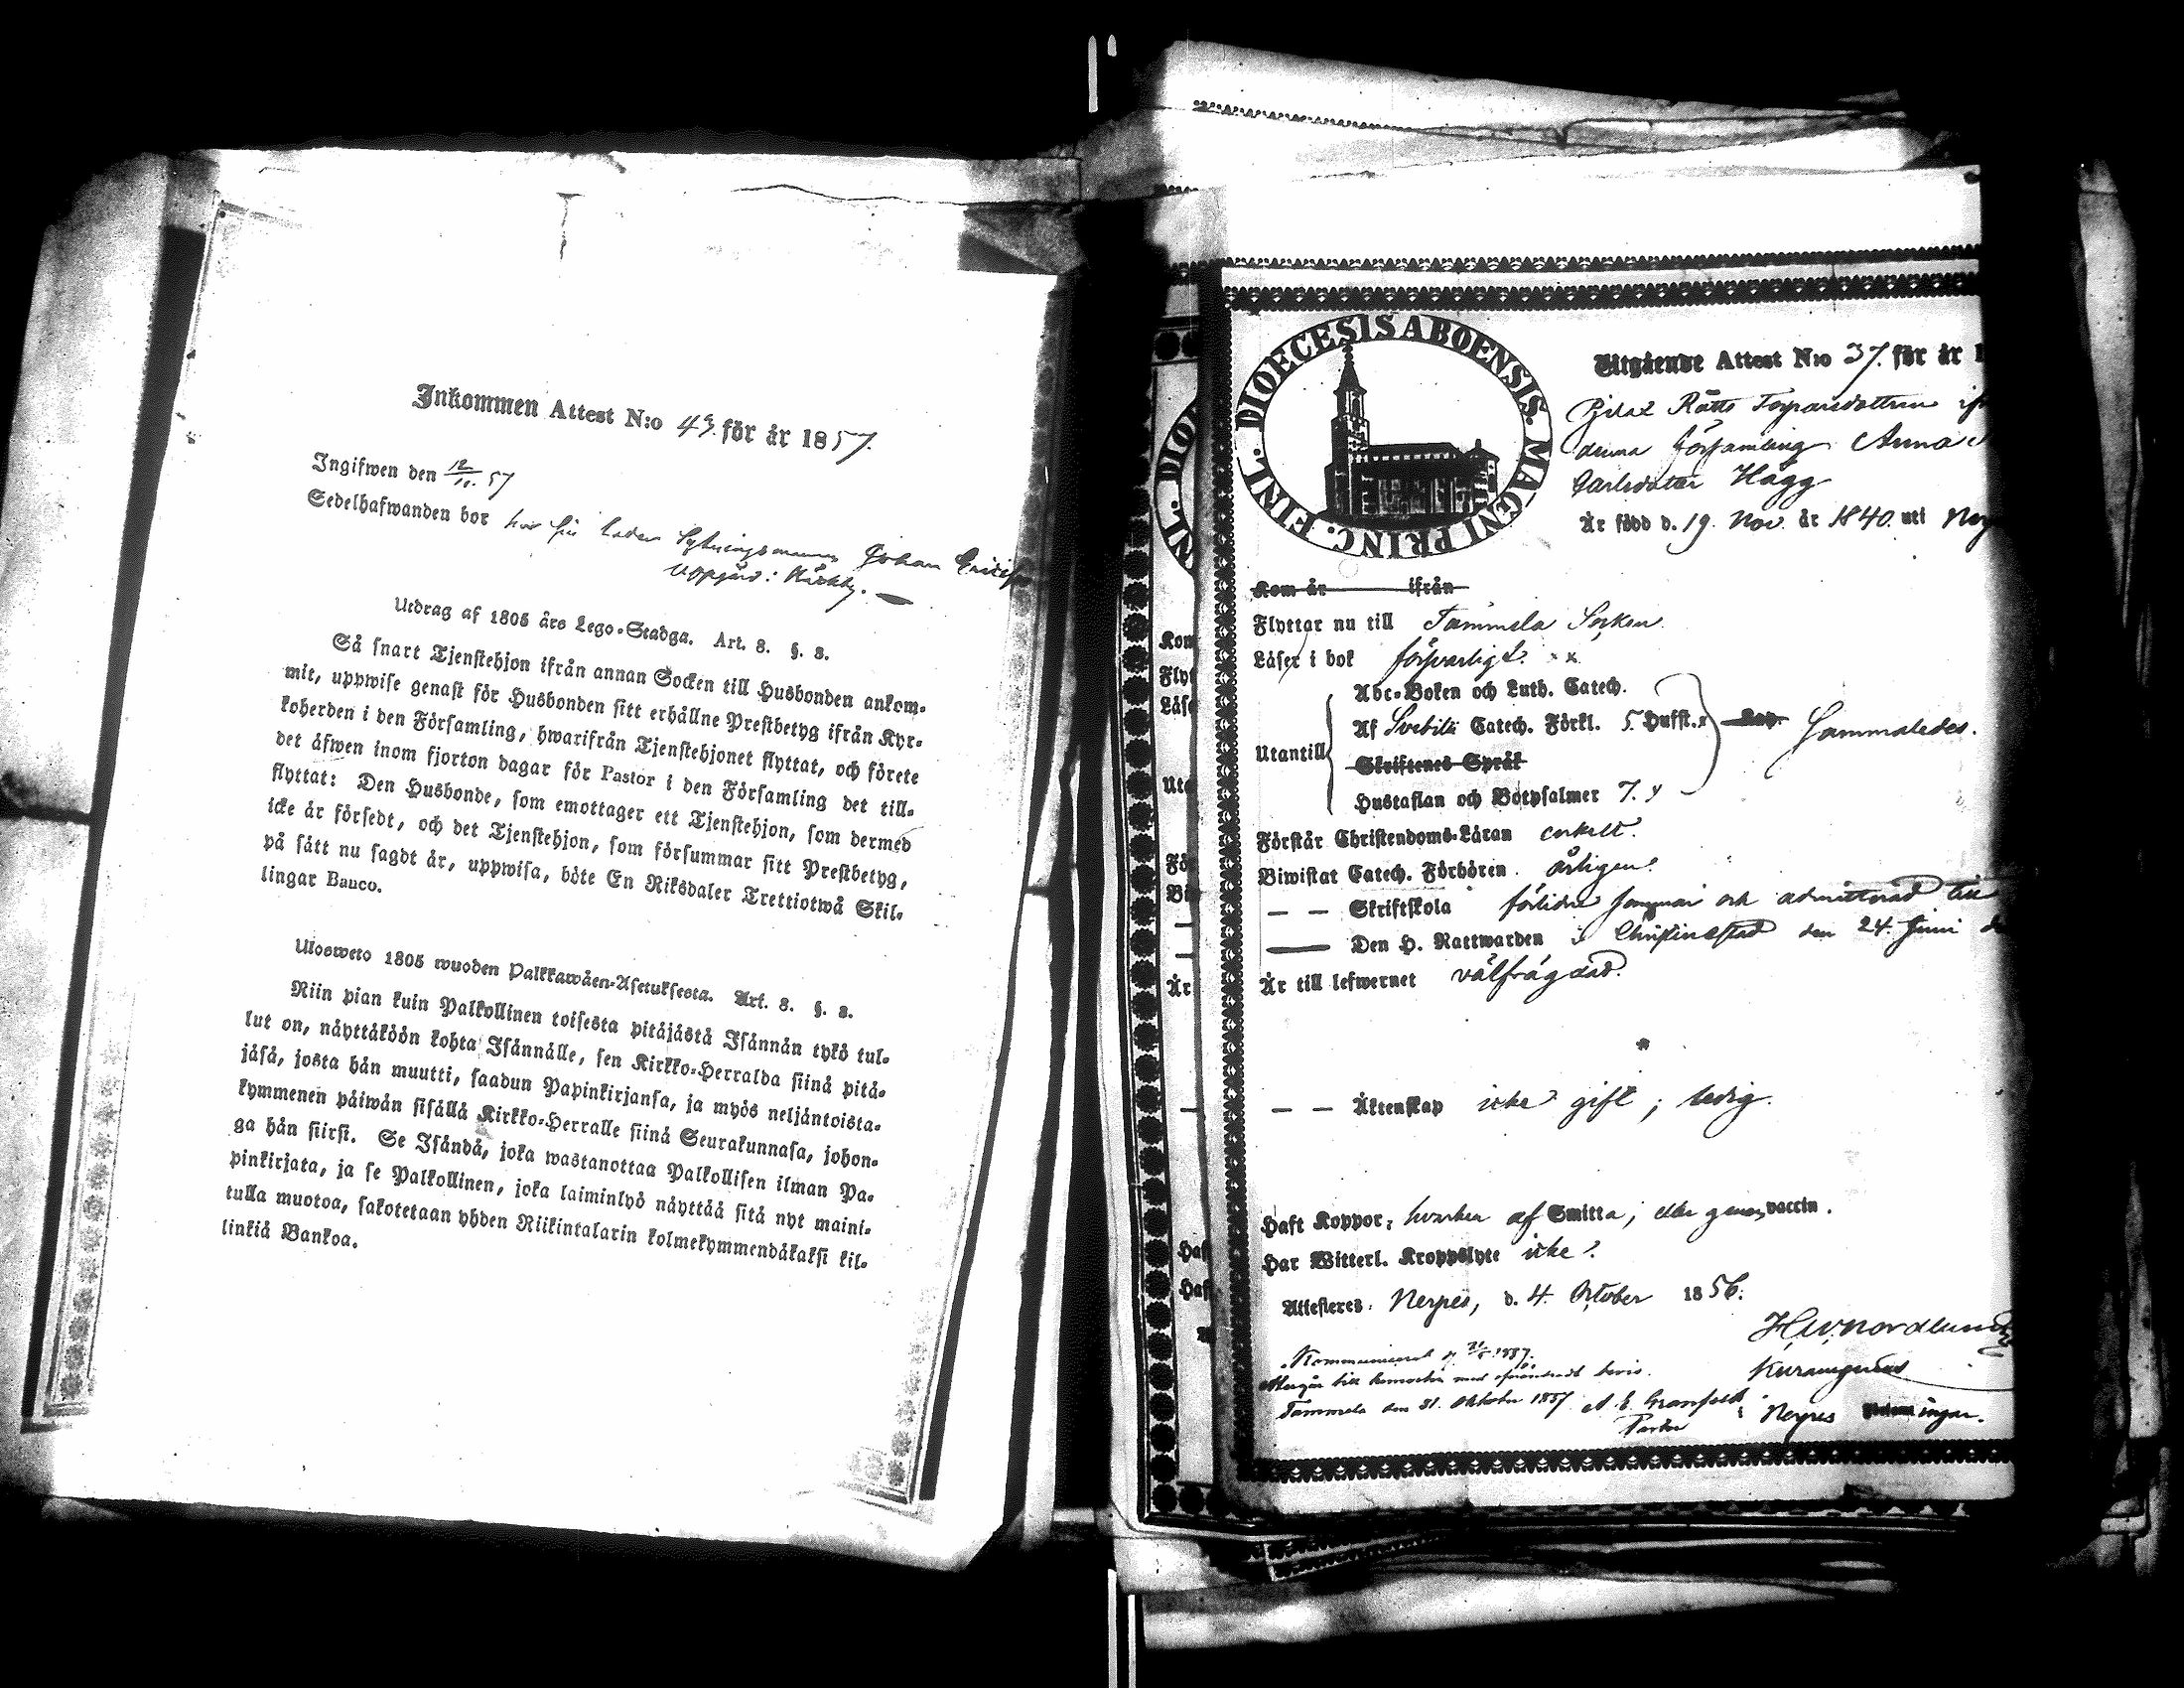 Inkommen Attest N:o 43. för år 1857.
Ingifwen den 12/11. 57
Sedelhafwanden bor hos sin fader Sytningsmannen Johan Ericss
Uppgård: Kärkky.
Utdrag af 1805 års Lego-Stadga. Art. 8. §. 3.
Så snart Tjenstehjon ifrån annan Socken till Husbonden ankom-
mit, uppwise genast för Husbonden sitt erhållne Prestbetyg ifrån Kyr-
koherden i den Församling, hwarifrån Tjenstehjonet flyttat, och förete
det äfwen inom fjorton dagar för Pastor i den Församling det till-
flyttat: Den Husbonde, som emottager ett Tjenstehjon, som dermed
icke är försedt, och det Tjenstehjon, som försummar sitt Prestbetyg,
på sätt nu sagdt är, uppwisa, böte En Riksdaler Trettiotwå Skil-
lingar Banco.
Ulosweto 1805 wuoden Palkkawäen-Asetuksesta. Art. 8. §. 3.
Niin pian kuin Palkollinen toisesta pitäjästä Isännän tykö tul-
lut on, näyttäköön kohta Isännälle, sen Kirkko-Herralda siinä pitä-
jäsä, josta hän muutti, saadun Papinkirjansa, ja myös neljäntoista-
kymmenen päiwän sisällä Kirkko-Herralle siinä Seurakunnasa, johon-
ga hän siirsi. Se Isändä, joka wastanottaa Palkollisen ilman Pa-
pinkirjata, ja se Palkollinen, joka laiminlyö näyttää sitä nyt maini-
tulla muotoa, sakotetaan yhden Riikintalarin kolmekymmendäkaksi kil-
linkiä Bankoa.
DIOECESIS ABOENSIS. MAGNI PRINC. FINL.
Utgående Attest N:o 37. för år 1
Pjelax Rätts Torparedottren if
denna församling Anna
Carlsdotter Hägg
Är född d. 19. Nov. år 1840. uti Ner
Kom år ifrån
Flyttar nu till Tammela Socken.
Läser i bok försvarligt. x x
Abc-Boken och Luth. Catech.
Af Svebilii Catech. Förkl. 5. Hufst. x
Utantill
Skriftenes Språk
Hustaflan och Botpsalmer 7. x
Sammaledes.
Förstår Christendoms-Läran enkelt.
Biwistat Catech. Förhören årligen.
— — Skriftskola förlidne Januari och admitterad till
— Den H. Nattwarden i Christinestad den 24. Juni
Är till lefwernet välfrägdad.
— — Äktenskap icke gift; ledig.
Haft Koppor, hvarken af Smitta, eller genom vaccin.
Har Witterl. Kroppslyte icke.
Attesteras, Nerpes, d. 4. October 1856.
H. W. Nordlund
Tammela den 31. Oktober 1857. A. E. Granfelt
Pastor
i Nerpes
Kom
Flyt
Läse
Uta
För
Biw
Är
Haf
Har